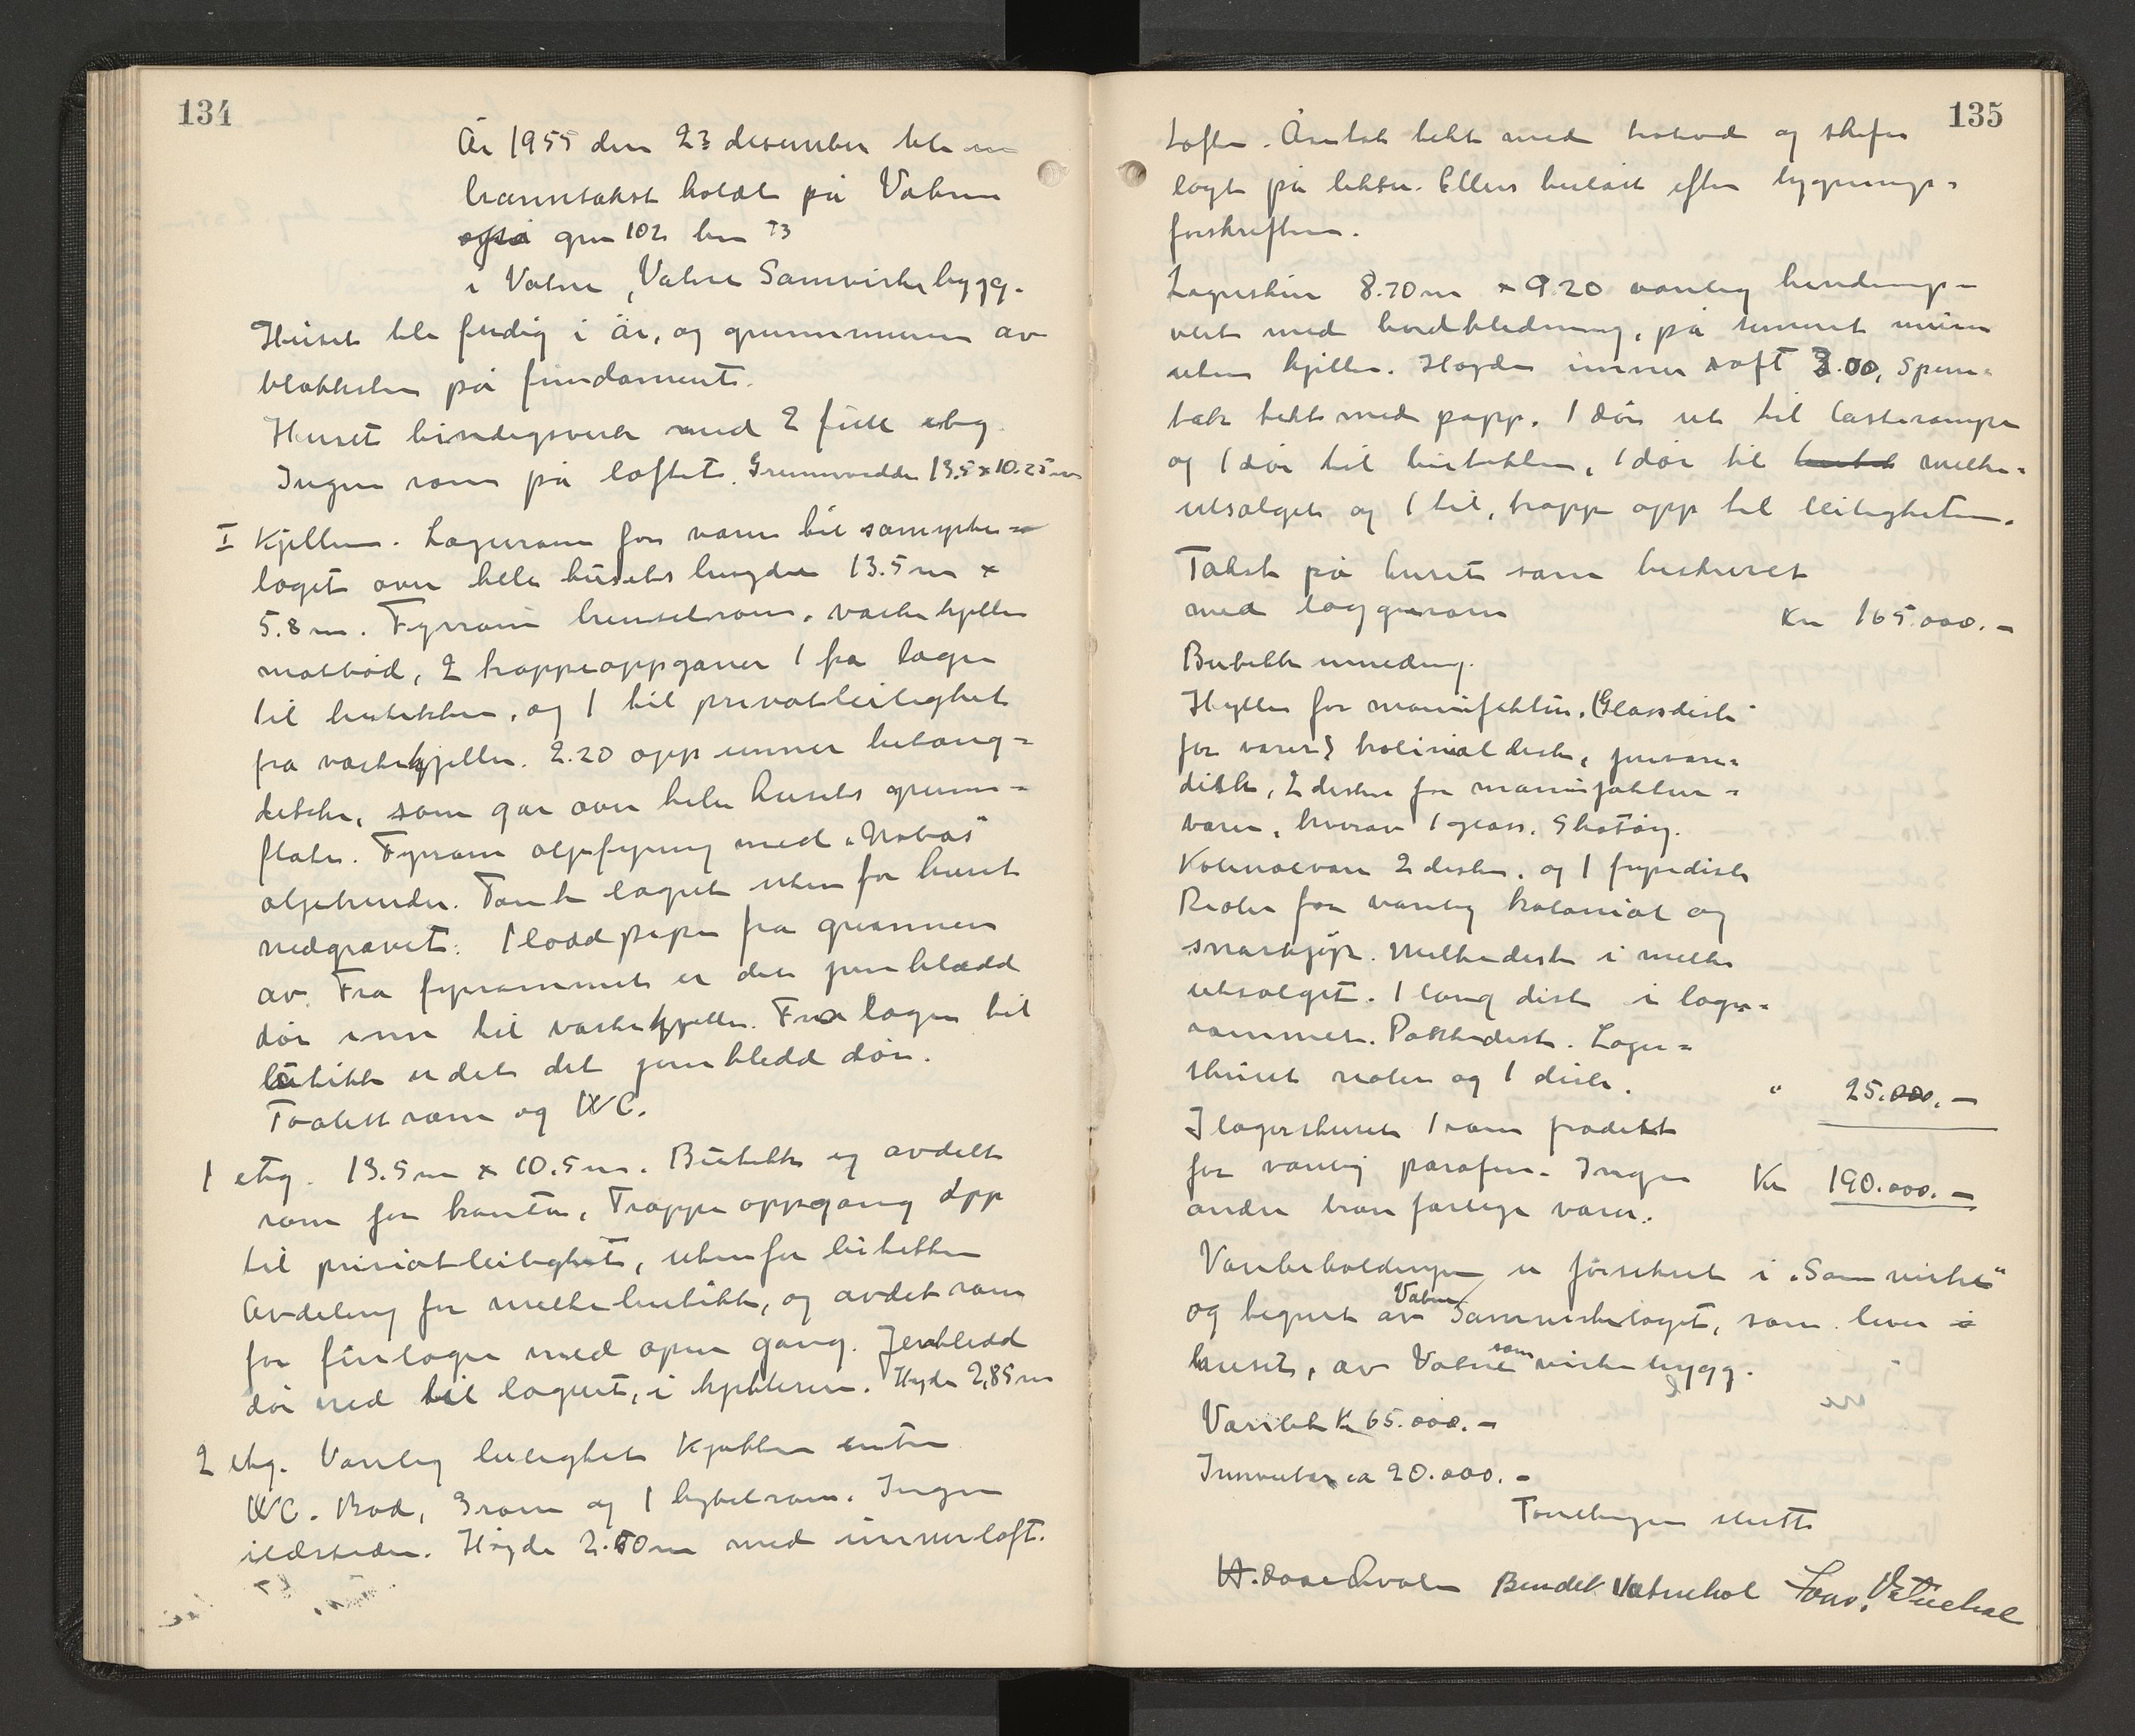 134
År 1955 den 23 desember ble
branntakst holdt på Vatne
også gnr 102 bnr 73
i Vatne, Vatne Samvirkebygg.
Huset ble ferdig i år, og grunnmuren av
blokkstein på fundament.
Huset bindigsverk med 2 fulle etg.
Ingen rom på loftet. Grunnvidde 13.5 x 10.25 m
I Kjelleren. Lagerrom for varer til samyrke-
laget over hele husets lengde 13.5 m x
5.8 m. Fyrrom brenselrom, vaskekjeller
matbod, 2 trappeoppganer 1 fra lager
til butikken, og 1 til privatleilighet
fra vaskekjeller. 2.20 opp unner betong-
dekke, som går over hele husets grunn-
flate. Fyrrom oljefyring med "Nobas"
oljebrender. Tank lagret uten for huset
nedgravet. 1 lodd pipe fra grunnen
av. Fra fyrrommet er det jernkledd
dør inn til vaskekjeller. Fra lager til
butikk er det det jernkledd dør.
Toalett rom og WC.
1 etg. 13.5 m x 10.5 m. Butikk og avdelt
rom for kontor, Trappe oppgang opp
til privatleilighet, utenfor butikken
Avdeling for melkebutikk, og avdelt rom
for finlager med open gang. Jernkledd
dør ned til lageret, i kjelleren. Høyde 2,85 m
2 etg. Vanlig leilighet Kjøkken entre
WC. Bod, 3 rom og 1 hybelrom. Ingen
ildsteder. Høyde 2.50 m med innerloft.
135
Loften. Åsetak tekt med trobord og skifer
lagt på lekter. Ellers beslått efter bygnings-
forskriften.
Lagerskur 8.70 m x 9.20 vanlig bindings-
verk med bordkledning, på sement murer
uten kjeller. Høyden inner loft 3.00, Sperre-
tak tekt med papp. 1 dør ut til lasterampe
og 1 dør til butikken, 1 dør til butik melke-
utsalget og 1 til, trapp opp til leiligheten.
Takst på huset som beskrevet
med laggerrom Kr 165.000.-
Butikk innredning.
Hyller for manufaktur. (Glassdisk
for varer) kolinial disk, jernvare-
disk, 2 disker for manufaktur-
varer, hvorav 1 glass. Skotøy.
Kolinialvare 2 disker, og 1 frysedisk
Reoler for vanlig kolonial og
snarkjøp. Melkedisk i melke
utsalget. 1 lang disk i lager-
rommet. Pakkedisk. Lager-
skuret reoler og 1 disk. " 25.000.-
I lagerskuret 1 rom fradelt
for vanlig parafin. Ingen Kr 190.000.-
andre brannfarlige varer.
Varebeholdningen er forsikret i "Samvirke"
og tegnet av Vatne Samvirkelaget, som leier i
huset, av Vatne samvirkebygg.
Varelek Kr 65.000.-
Innventar ca 20.000.-
Forretningen sluttt
Bendik Vatnehol Vatnehol